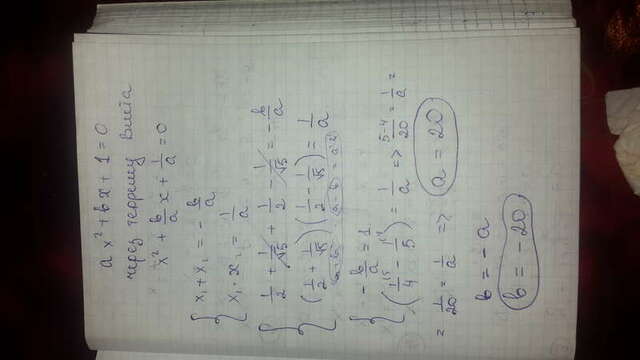 ax² + bx + 1 = 0
через теорему Виета
x² + b/a x + 1/a = 0
{ x₁ + x₂ = - b/a
x₁ · x₂ = 1/a
{ 1/2 + 1/√5 + 1/2 - 1/√5 = - b/a
(1/2 + 1/√5)(1/2 - 1/√5) = 1/a
{ - b/a = 1
(1/4 - 1/5) = 1/a => 5-4/20 = 1/a =
= 1/20 = 1/a => a = 20
b = -a
b = -20